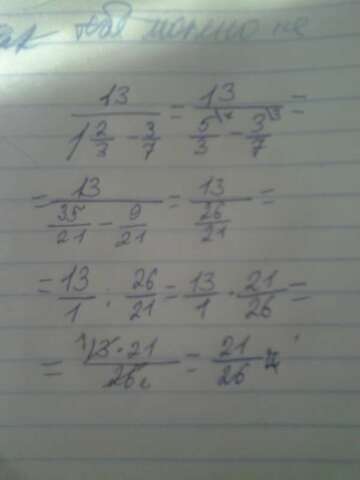 можно не
\frac{13}{1\frac{2}{3} - \frac{3}{7}} = \frac{13}{\frac{5}{3}^{\backslash 7} - \frac{3}{7}^{\backslash 3}} =
= \frac{13}{\frac{35}{21} - \frac{9}{21}} = \frac{13}{\frac{26}{21}} =
= \frac{13}{1} : \frac{26}{21} = \frac{13}{1} \cdot \frac{21}{26} =
= \frac{^{1}13 \cdot 21}{26_{2}} = \frac{21}{26}